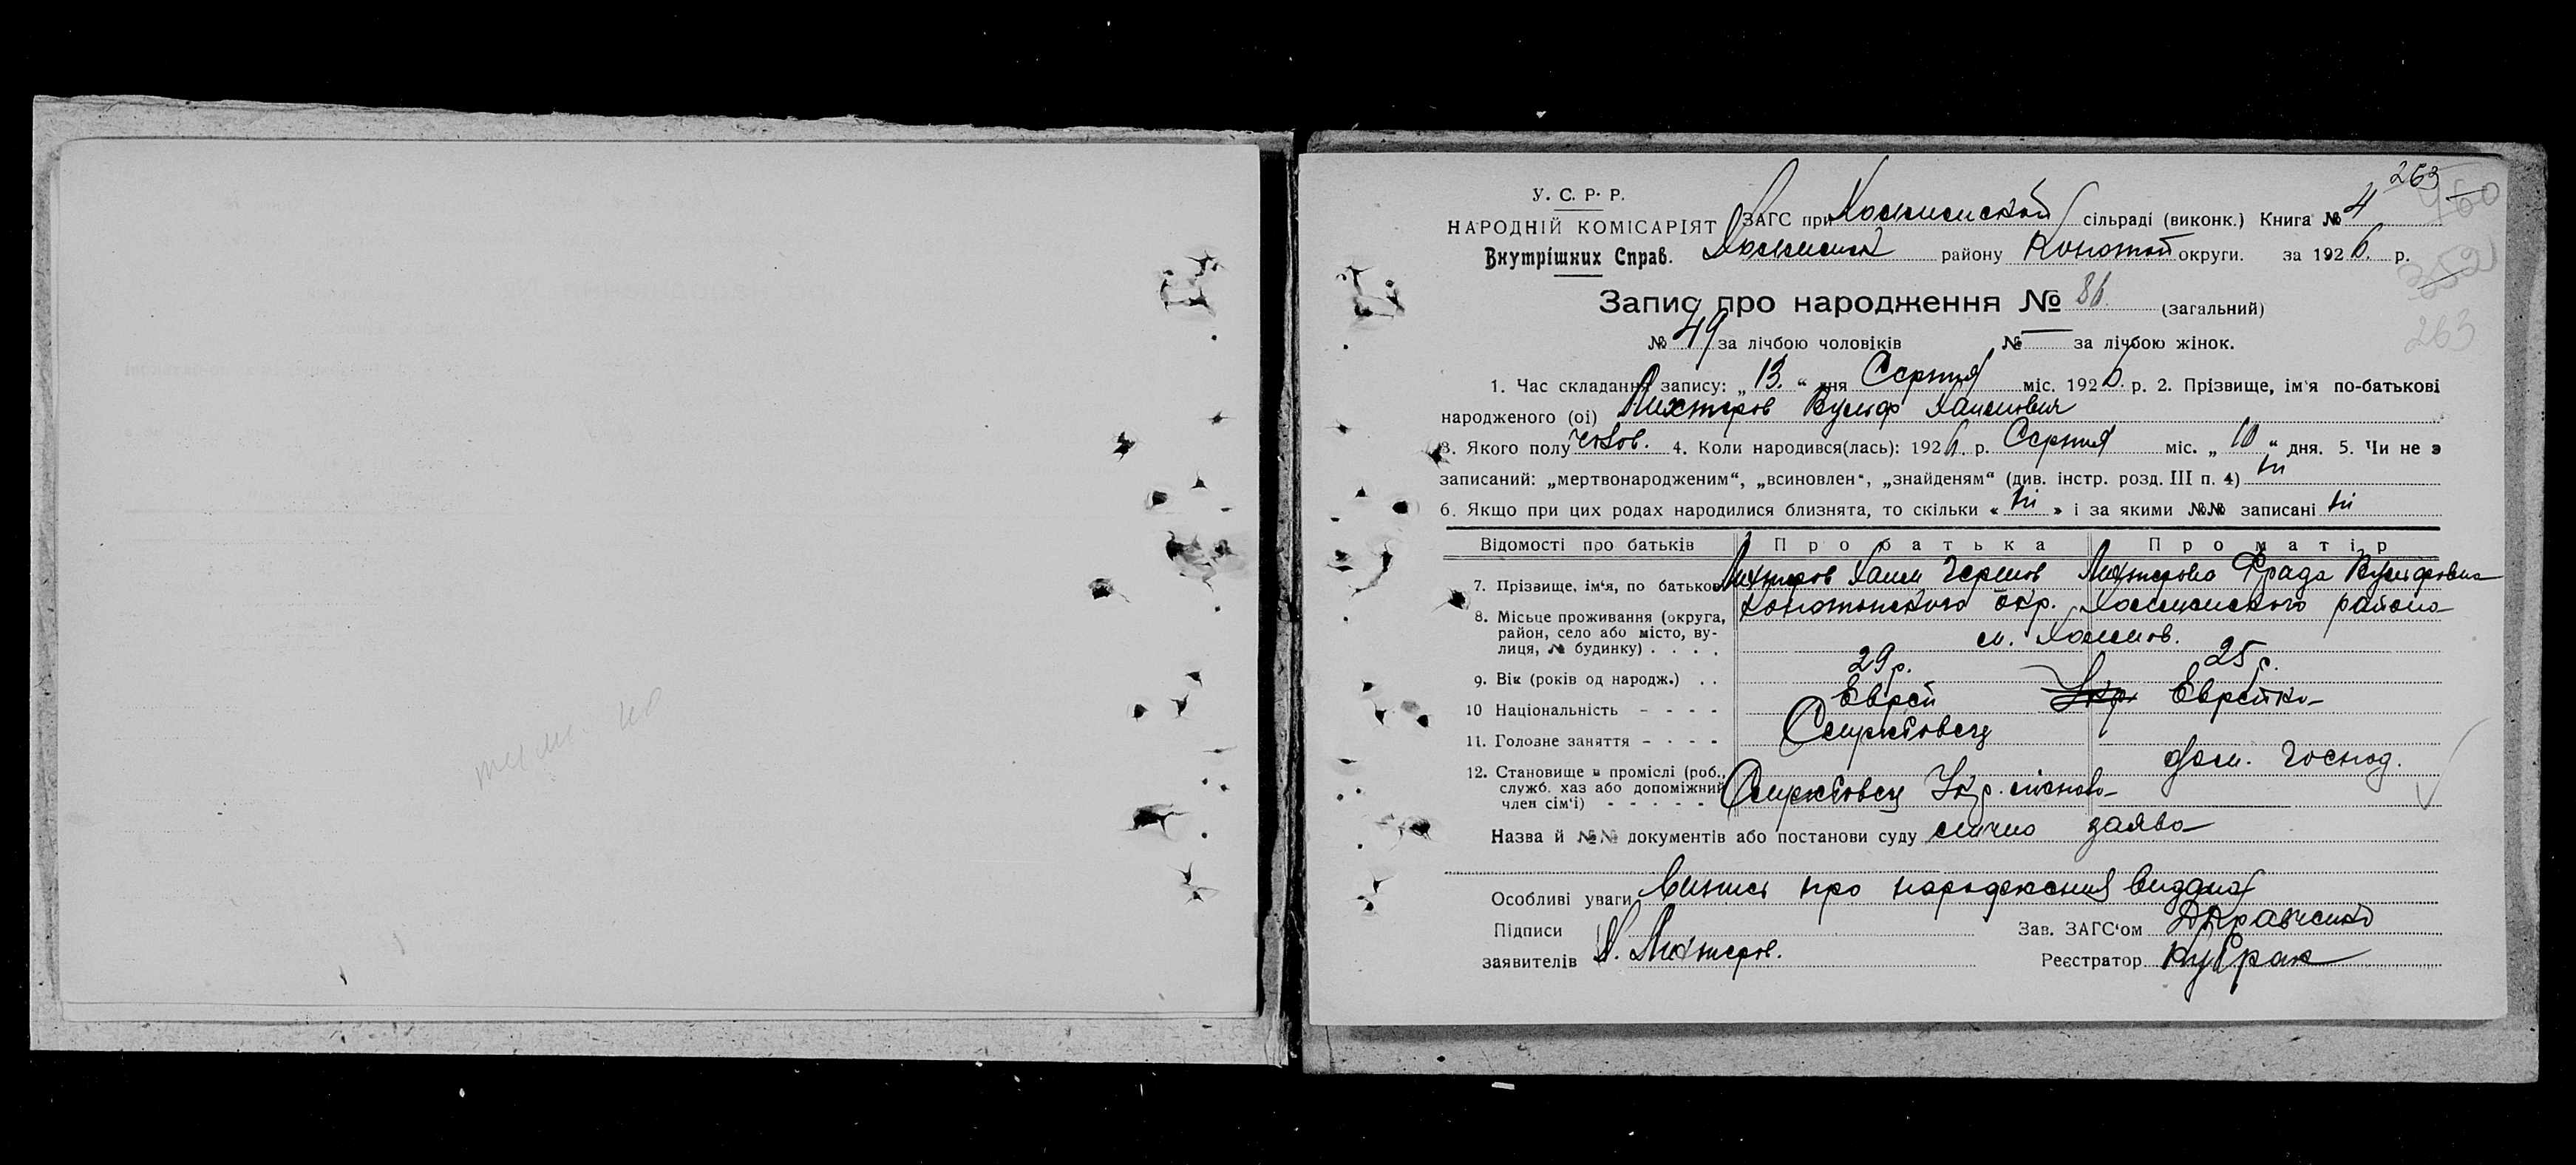 263
960
У. С. Р. Р.
НАРОДНІЙ КОМІСАРІЯТ
Внутрішних Справ.
ЗАГС при сільраді (виконк.) Книга № 4
району Конотоп округи. за 1926. р.
352
263
Запис про народження № 86. (загальний)
№ 49 за лічбою чоловіків № — за лічбою жінок.
1. Час складання запису: „13.“ дня Серпня міс. 1926. р. 2. Прізвище, ім‘я по-батькові
народженого (ої) Лихтеров Вульф Хаимович
3. Якого полу чолов. 4. Коли народився(лась): 1926. р. Серпня міс. „10“ дня. 5. Чи не э
записаний: „мертвонародженим“, „всиновлен“, „знайденям“ (див. інстр. розд. III п. 4) ні
6. Якщо при цих родах народилися близнята, то скільки « ні » і за якими №№ записані ні
Відомості про батьків Про батька Про матір
7. Прізвище, ім‘я, по батькові Лихтеров Хаим Лихтерова Фрада Вульфовна
8. Місьце проживання (округа, район, село або місто, вулиця, № будинку) . . . . Конотопского окр. района
м.
9. Вік (років од народж.) . . 29 р. 25 р.
10 Національність - - - - Еврей Укр Еврейка
11. Головне заняття - - - -
дом. господ.
12. Становище в проміслі (роб., служб. хаз або допоміжний член сім‘ї) - - - - - Укр.
Назва й №№ документів або постанови суду заява
Особливі уваги Випись про народження видана
Підписи
заявителів Х. Лихтеров.
Зав. ЗАГС‘ом Кравченко
Реєстратор Кубрак